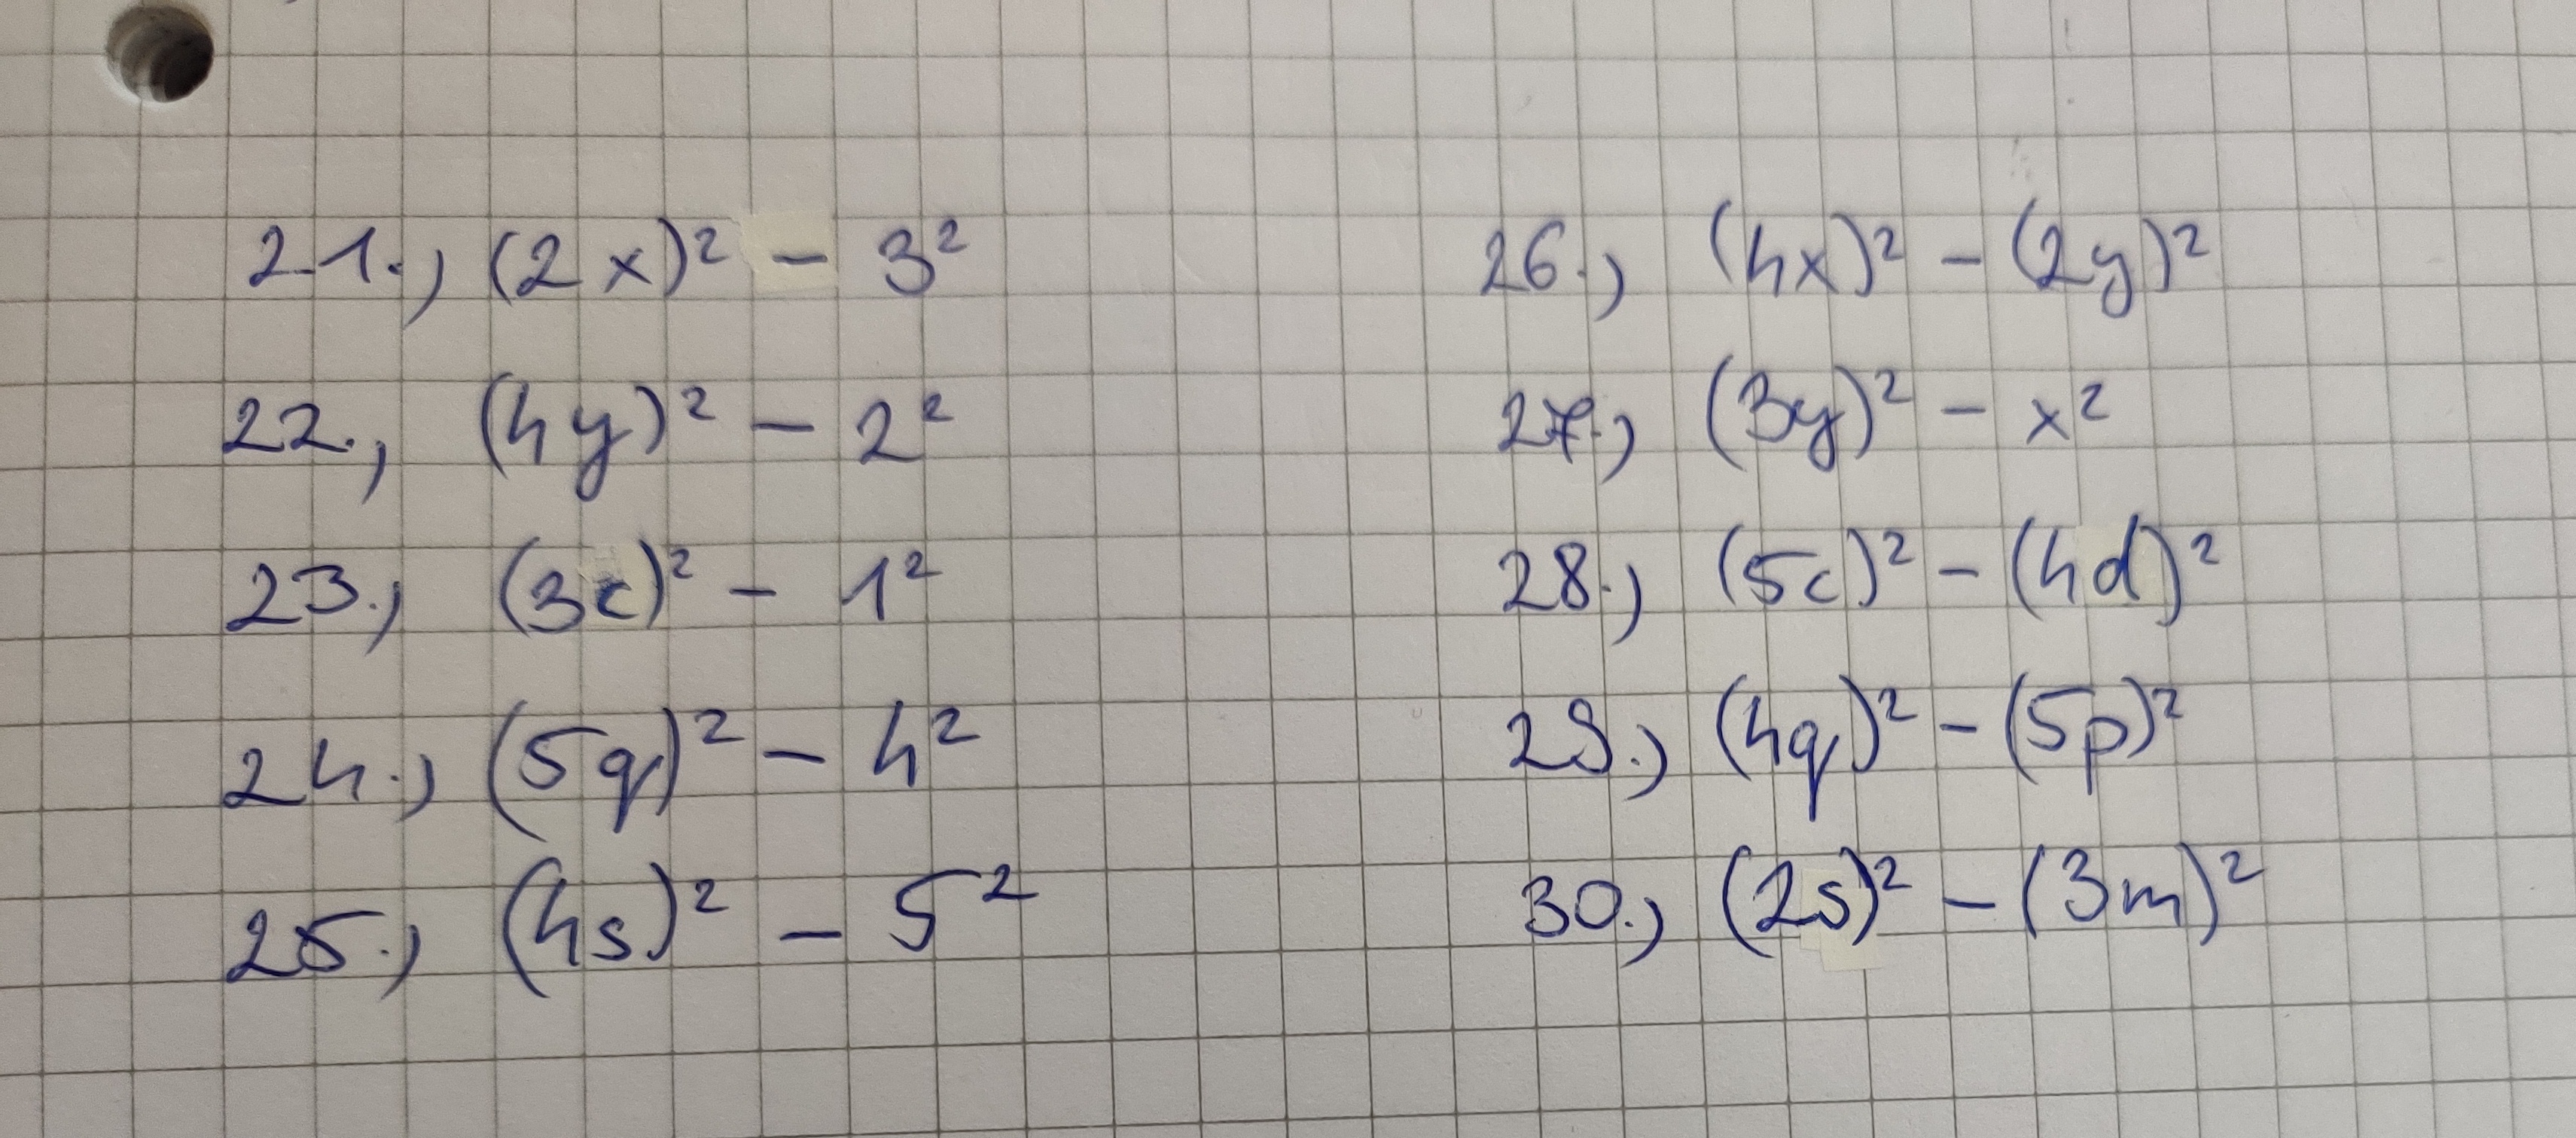 21.) (2x)² - 3²
22.) (4y)² - 2²
23.) (3c)² - 1²
24.) (5q)² - 4²
25.) (4s)² - 5²
26.) (4x)² - (2y)²
27.) (3y)² - x²
28.) (5c)² - (4d)²
29.) (4q)² - (5p)²
30.) (2s)² - (3m)²